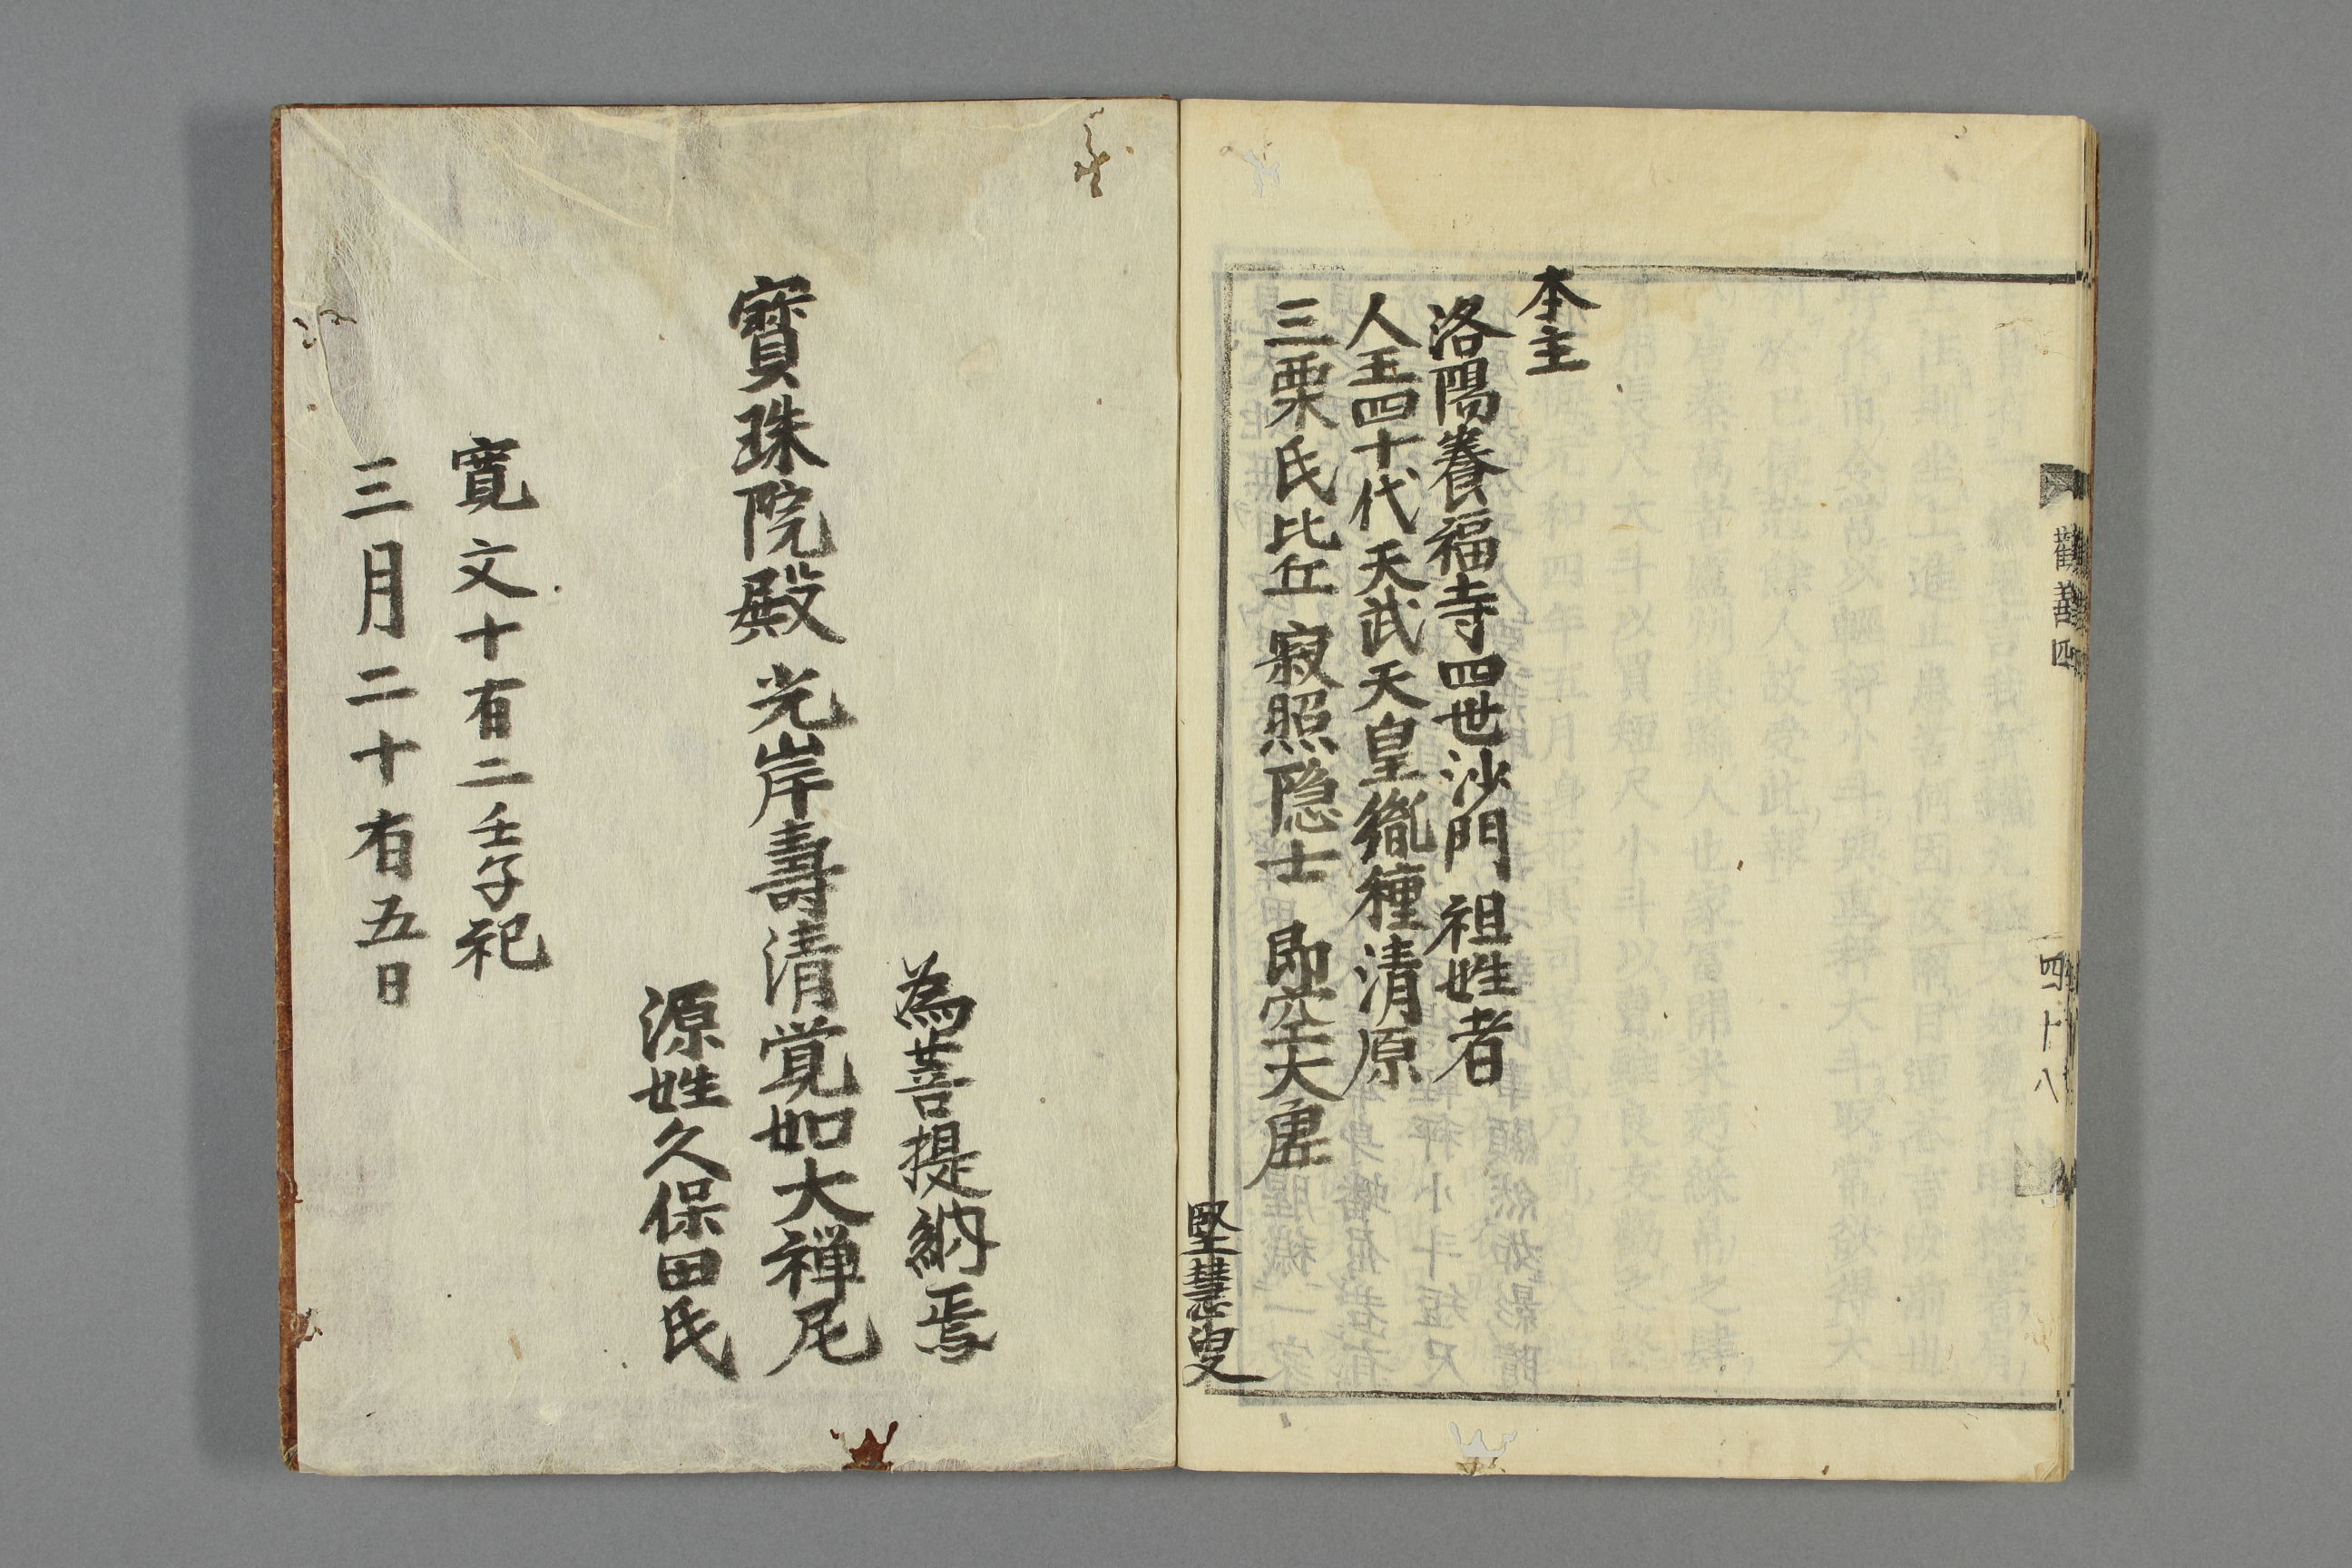 本主
洛陽養福寺四世沙門祖姓者
人王四十代天武天皇胤種清原
三栗氏比丘寂照隐士即空大庸
堅慧叟
勸善四
四十八
為菩提納焉
寶珠院殿光岸壽清覚如大禅尼
源姓久保田氏
寛文十有二壬子祀
三月二十有五日